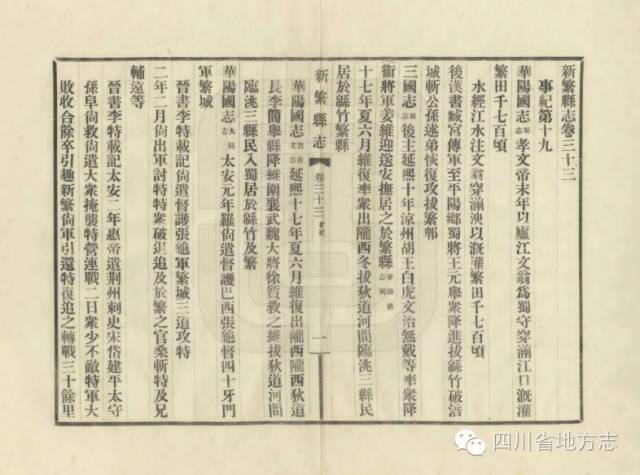 新繁縣志卷三十三
事紀第十九
華陽國志蜀志孝文帝末年以廬江文翁爲蜀守穿湔江口溉灌
繁田千七百頃
水經江水注文翁穿湔洩以溉灌繁田千七百頃
後漢書臧宮傳軍至平陽鄉蜀將王元舉衆降進拔緜竹破涪
城斬公孫述弟恢復攻拔繁郫
三國志蜀志後主延熙十年涼州胡王白虎文治無戴等率衆降
衞將軍姜維迎逆安撫居之於繁縣
十七年夏六月維復率衆出隴西冬拔狄道河間臨洮三縣民
居於緜竹繁縣
新繁縣志
卷三十三
一
華陽國志 延熙十七年夏六月維復出隴西隴西狄道
長李簡舉縣降維圍襄武魏大將徐質救之維拔狄道河間
臨洮三縣民入蜀居於緜竹及繁
華陽國志大同志太安元年羅尙遣督護巴西張龜督四十牙門
軍繁城
晉書李特載記尙遣督護張龜軍繁城三道攻特
二年二月尙出軍討特特衆破退追及於繁之官桑斬特及兄
輔遠等
晉書李特載記太安二年惠帝遣荆州刺史宋岱建平太守
孫阜尙救尙遣大衆掩襲特營連戰二日衆少不敵特軍大
敗收合餘卒引趣新繁尙軍引還特復追之轉戰三十餘里
四川省地方志